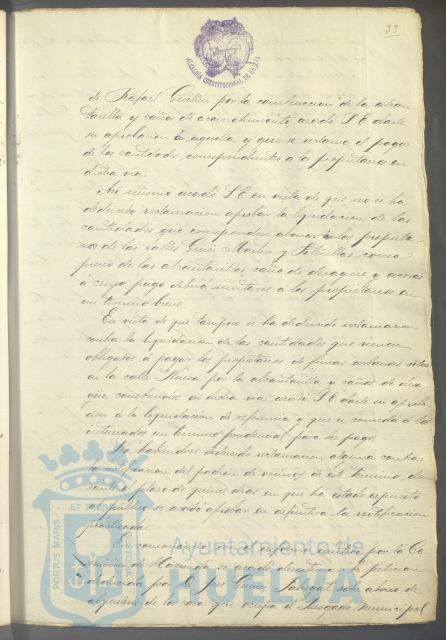 33
ALCALDIA CONSTITUCIONAL DE HUELVA
de Rafael Guillen por la construccion de la alcan-
tarilla y caños de acometimiento acordó S.E. darle
su aprobacion á aquella y que se reclame el pago
de las cantidades correspondientes á los propietarios en
dicha via.
Así mismo acordó S.E. en vista de que no se ha
deducido reclamacion aprobar la liquidacion de las
cantidades que corresponden abonar á los propieta-
rios de las calles Gini Martin y como
precio de las alcantarillas, caños de desagües y aceras
á cuyo pago deberá invitarse á los propietarios en
un termino breve.
En vista de que tampoco se ha deducido reclamacion
contra la liquidacion de las cantidades que vienen
obligados á pagar los propietarios de fincas urbanas sitas
en la calle Nueva por la alcantarilla y caños de desa-
güe construidos en dicha via acordó S.E. darle su aproba-
cion á la liquidacion de referencia y que se conceda á los
interesados un termino prudencial para su pago.
No habiendose deducido reclamacion alguna contra
la rectificacion del padron de vecinos de este termino du-
rante el plazo de quince dias en que ha estado expuesto
al público se acordó aprobar en definitiva la rectificacion
practicada.
En consonancia con el informe emitido por la Co-
mision de Hacienda se acordó desestimar la peticion
deducida por D. José Garcia sobre abono de
alquileres de la casa que ocupa el Juzgado Municipal
PORTUS MARIS ET TERRAE CUSTODIA
Ayuntamiento de
HUELVA